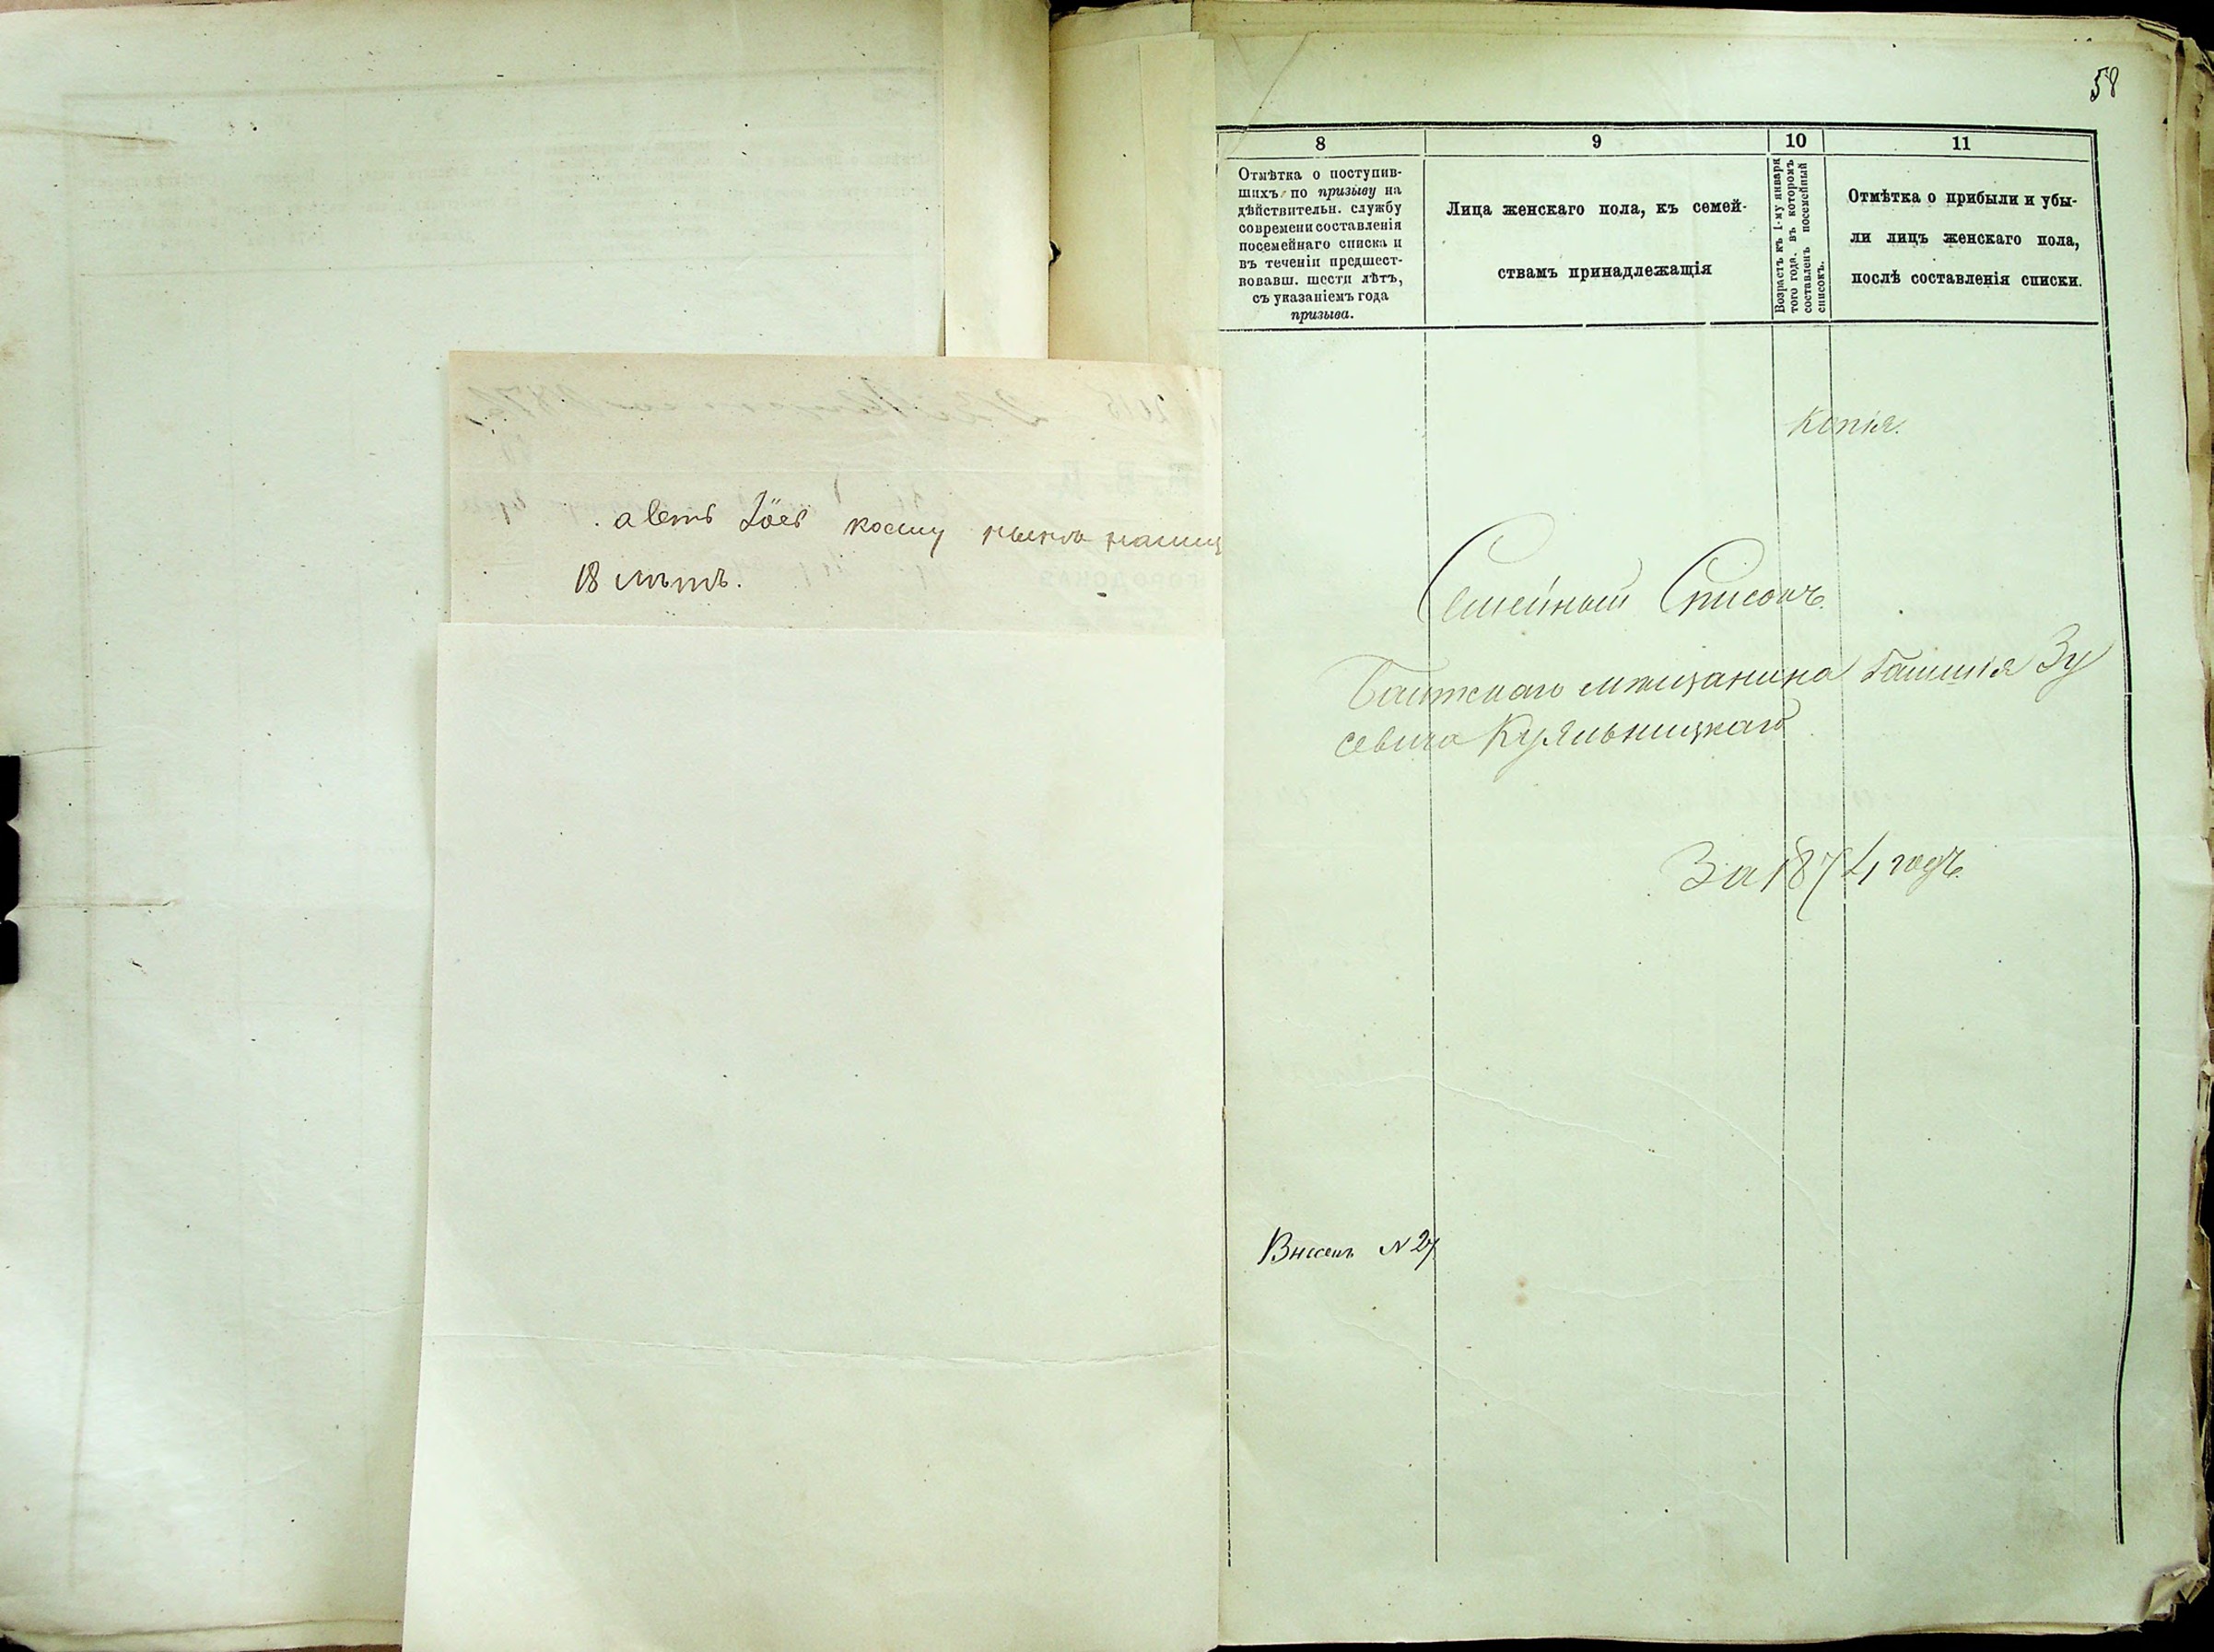 58
8
9
10
11
Отмѣтка о поступив-
шихъ по призыву на
дѣйствительн. службу
современи составленія
посемейнаго списка и
въ теченіи предшест-
вовавш. шести лѣтъ,
съ указаніемъ года
призыва.
Лица женскаго пола, къ семей-
ствамъ принадлежащія
Возрастъ къ 1-му января
того года, въ которомъ
составленъ посемейный
списокъ.
Отмѣтка о прибыли и убы-
ли лицъ женскаго пола,
послѣ составленія списки.
Копія.
Семейный Списокъ
мѣщанина Зу
севича Куяльницкаго
За 1874 годъ.
Внесенъ N 27
коему
18 лѣтъ.